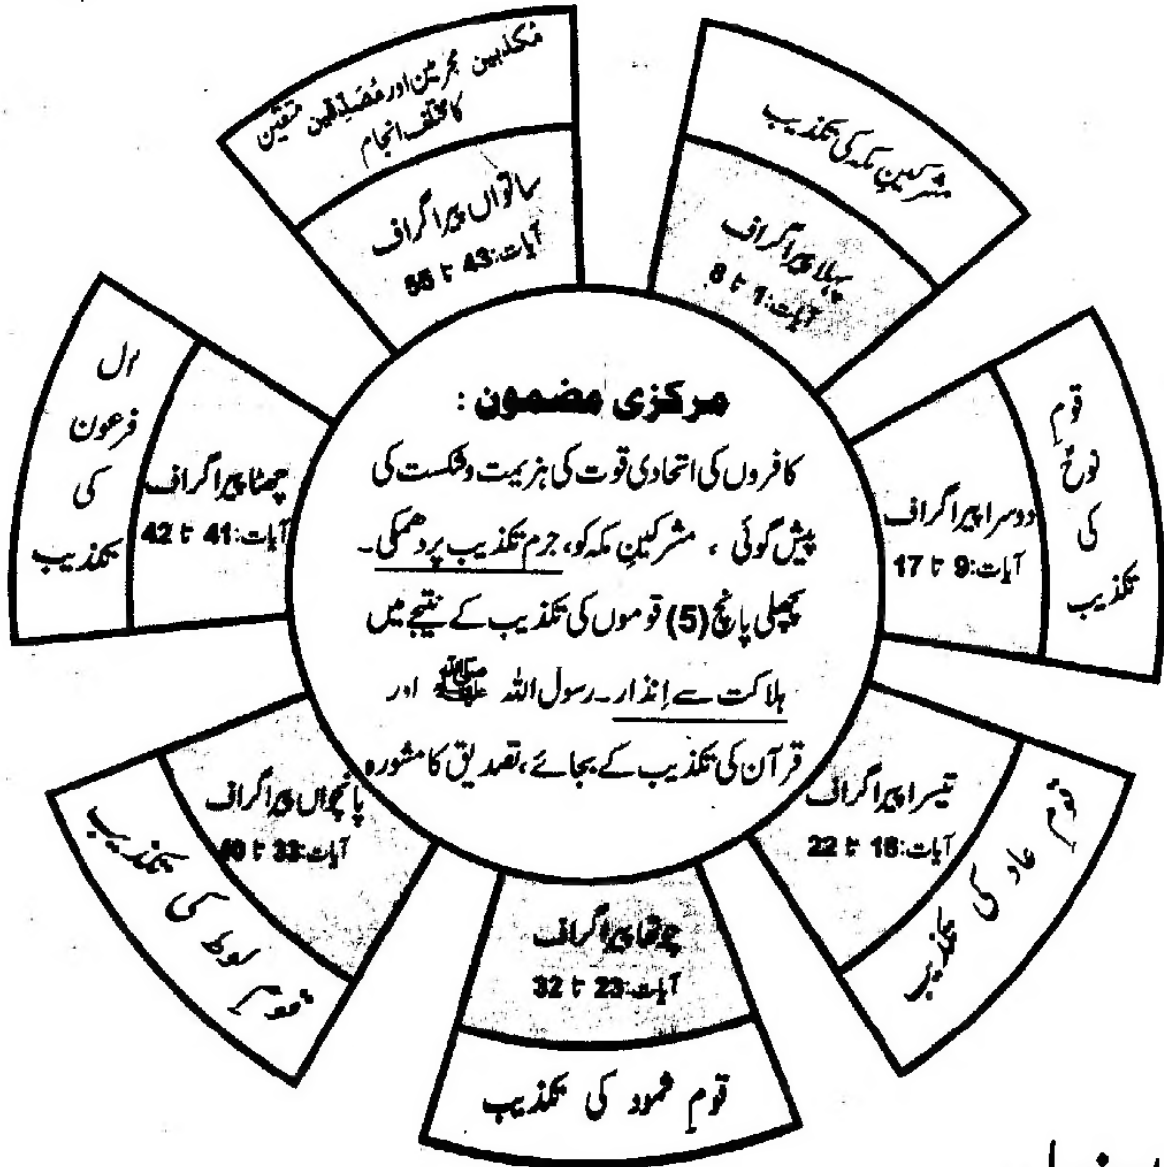 مرکزی مضمون :
کافروں کی اتحادی قوت کی ہزیمت و شکست کی
پیش گوئی ، مشرکینِ مکہ کو، جرم تکذیب پر دھمکی۔
پچھلی پانچ (5) قوموں کی تکذیب کے نتیجے میں
ہلاکت سے اِنذار۔ رسول اللہ ﷺ اور
قرآن کی تکذیب کے بجائے، تصدیق کا مشورہ
مشرکینِ مکہ کی تکذیب
پہلا پیراگراف
آیات:1 تا 8
قومِ
نوحؑ
کی
تکذیب
دوسرا پیراگراف
آیات:9 تا 17
قومِ عاد کی تکذیب
تیسرا پیراگراف
آیات:18 تا 22
چوتھا پیراگراف
آیات:23 تا 32
قومِ ثمود کی تکذیب
قومِ لوط کی تکذیب
پانچواں پیراگراف
آیات:33 تا 40
ال
فرعون
کی
تکذیب
چھٹا پیراگراف
آیات:41 تا 42
مُکذبین مجرمین اور مُصَدِّقین متقین
کا مختلف انجام
ساتواں پیراگراف
آیات:43 تا 55